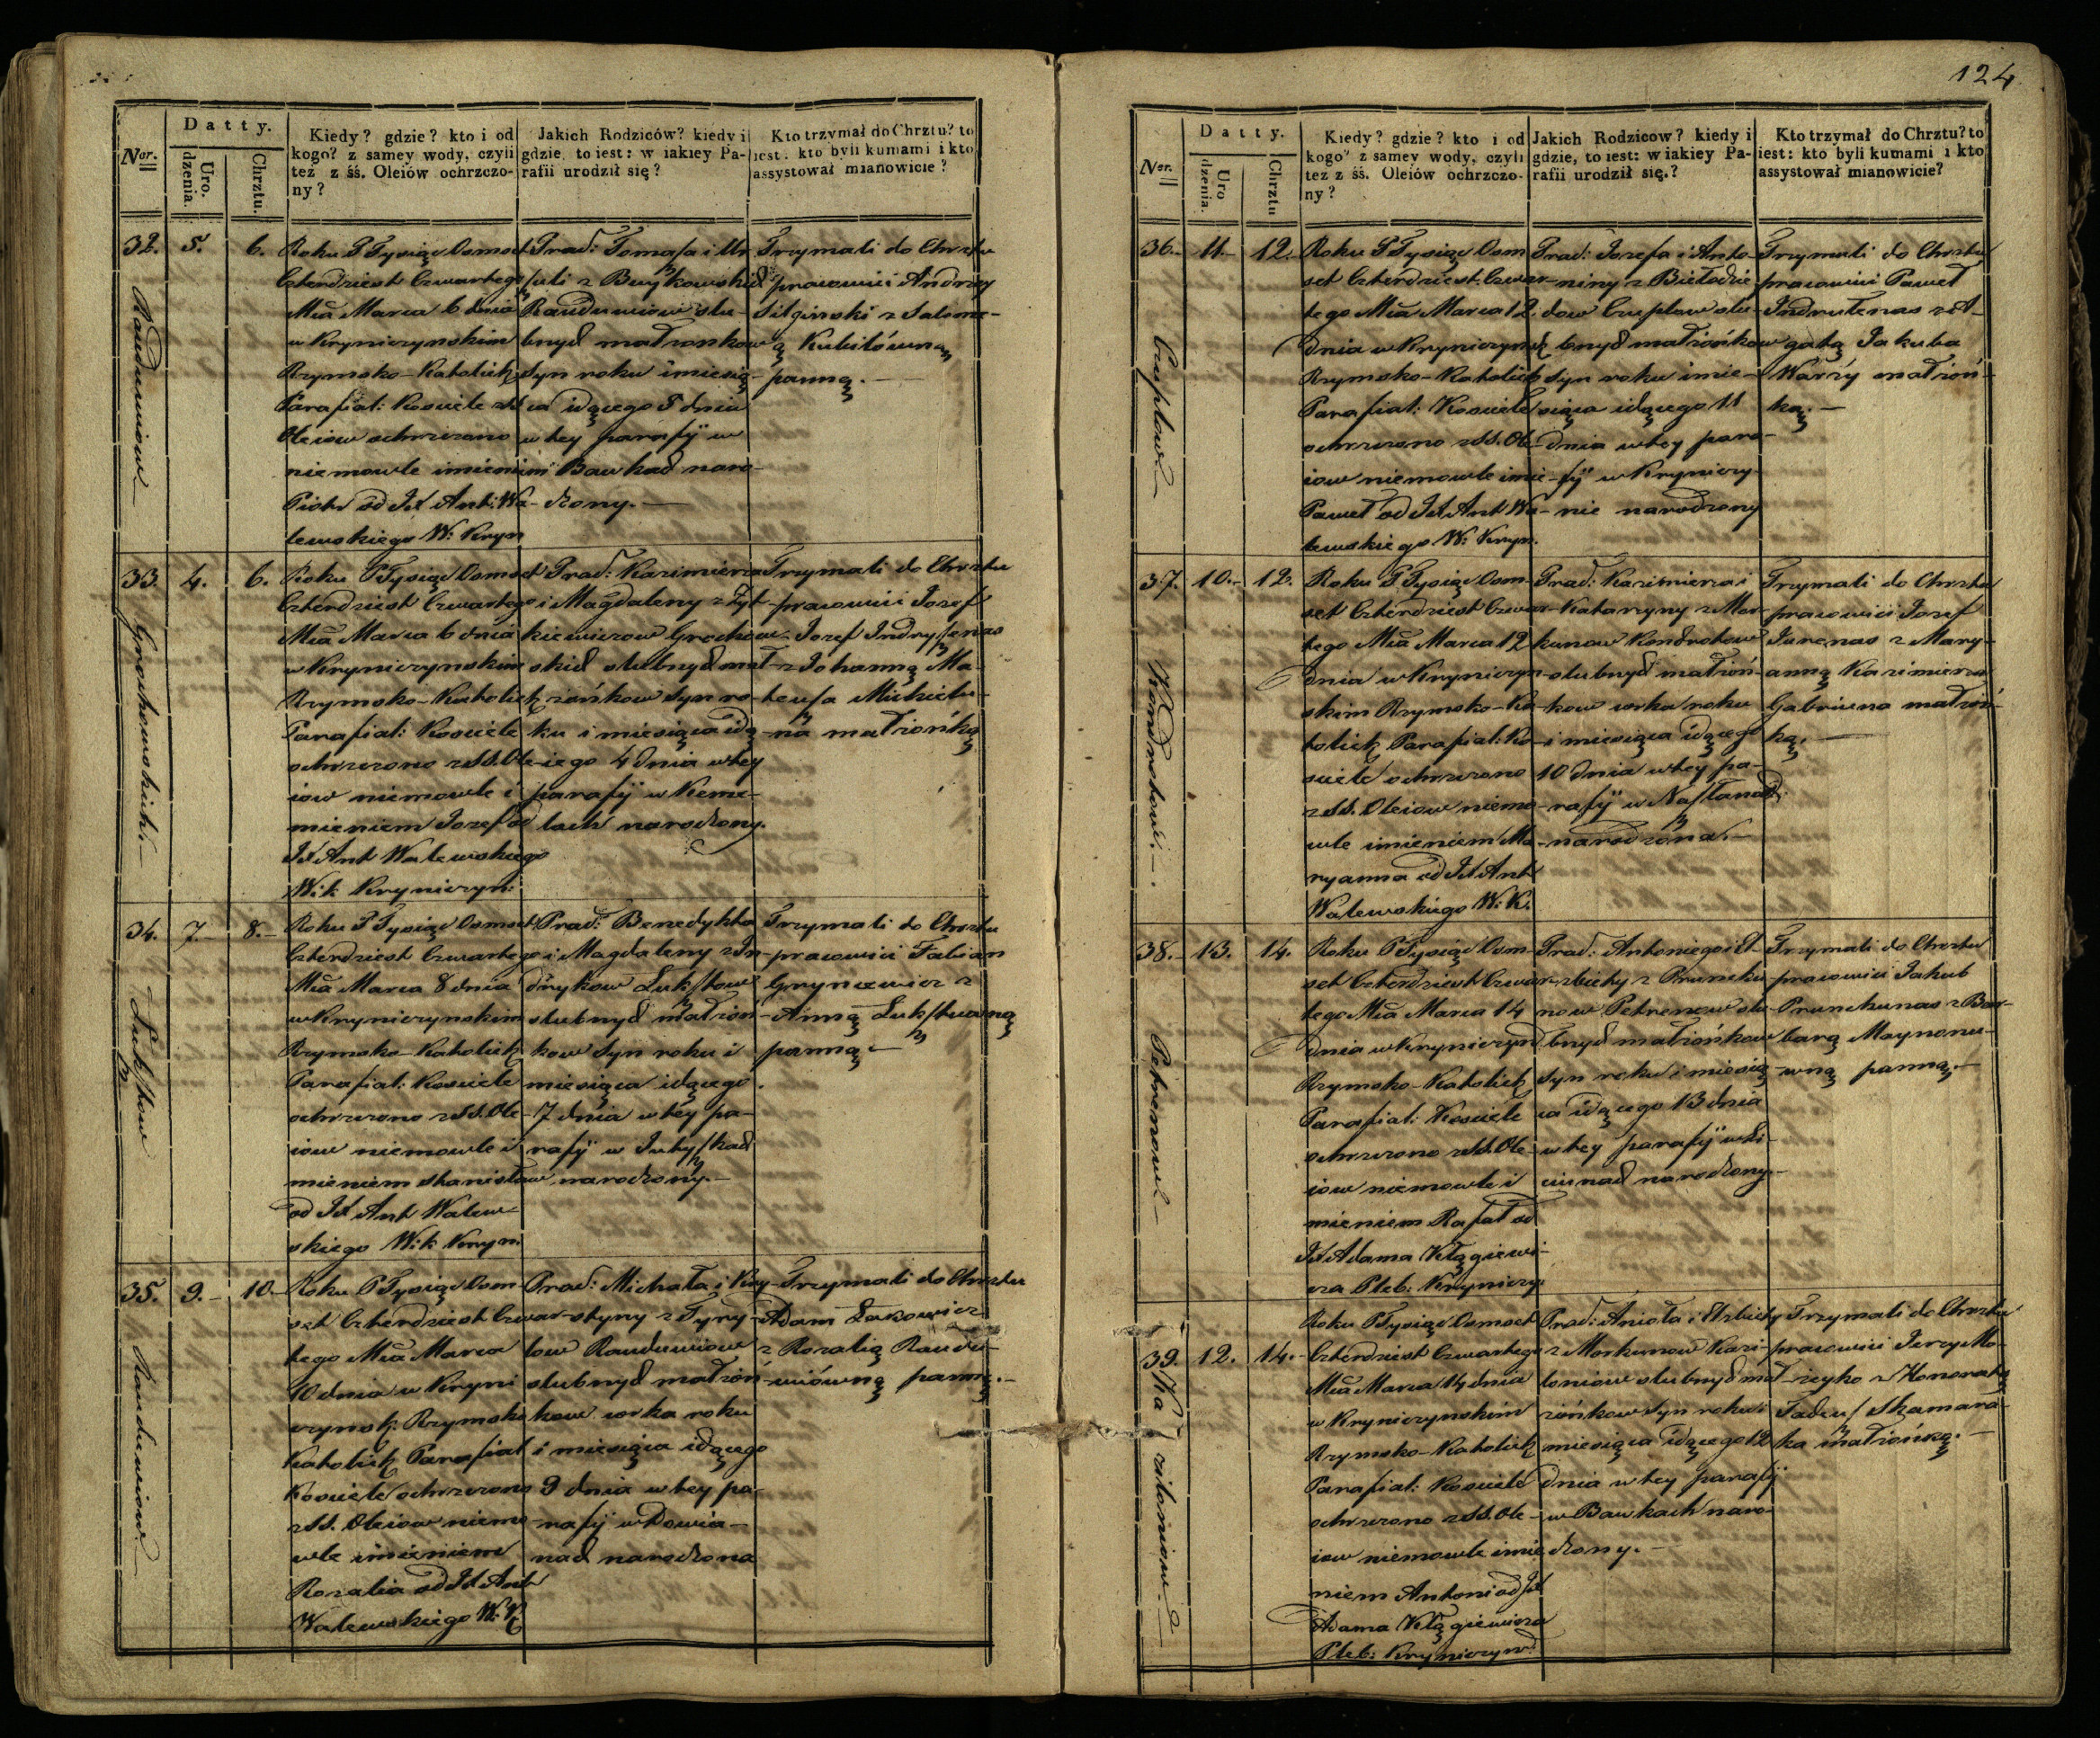 124
Datty.
Nor.
Uro.
dzenia.
Chrztu.
Kiedy? gdzie? kto i od
kogo? z samey wody, czyli
też z śś. Oleiów ochrzczo-
ny?
Jakich Rodziców? kiedy i
gdzie, to iest: w iakiey Pa-
rafii urodził się?
Kto trzymał do Chrztu? to
iest: kto byli kumami i kto
assystował mianowicie?
32. 5. 6.
Rauduwiow
Roku P Tysiąc Osmset
Czterdziest Czwartego
Mca Marca 6 dnia
w Kryniczynskim
Rzymsko-Katolick
Parafial: Kosciele z SS
Oleiow ochrzczono
niemowle imieniem
Piotr od JX Ant: Wa-
lewskiego W: Kryn
Prad: Tomasza i Ur
szuli z
Rauduwiow slu-
bnych małżonkow
Syn roku i miesią-
ca idącego 5 dnia
w tey parafij w
Bawkach naro-
dzony.—
Trzymali do Chrztu
pracowici Andrzey
Silginski z Salome-
ą Kubilówną
panną.—
33. 4. 6.
Grochowskich.—
Roku P Tysiąc Osmset
Czterdziest Czwartego
Mca Marca 6 dnia
w Kryniczynskim
Rzymsko-Katolick
Parafial: Kosciele
ochrzczono z SS. Ole-
iow niemowle i
mieniem Jozef od
JX Ant Walewskiego
W: k Kryniczyn:
Prad: Kazimierza
i Magdaleny z Żyt-
kiewiczow Grochow-
skich slubnych mał-
żońkow Syn ro-
ku i miesiąca idą-
cego 4 dnia w tey
parafij w Keme-
lach narodzony.
Trzymali do Chrztu
pracowici Jozef
Jozef Indryszonas
z Johanną Ma-
teusza Mickielu-
na małżońką
34. 7. 8.
Luksztow
Roku P Tysiąc Osmset
Czterdziest Czwartego
Mca Marca 8 dnia
w Kryniczynskim
Rzymsko-Katolick
Parafial: Kosciele
ochrzczono z SS. Ole-
iow niemowle i
mieniem Stanisław
od JX Ant Walew-
skiego W: k Kryn.
Prad: Benedykta
i Magdaleny z In-
drykow Luksztow
slubnych małżoń-
kow Syn roku i
miesiąca idącego
7 dnia w tey pa-
rafij w Jutyszkach
narodzony.—
Trzymali do Chrztu
pracowici Fabian
Gryncewicz z
Anną Luksztuwną
panną.—
35. 9. 10.
Rauduwiow.—
Roku P Tysiąc Osm-
set Czterdziest Czwar-
tego Mca Marca
10 dnia w Kryni
czynsk: Rzymsko
Katolick Parafial
Kosciele ochrzczono
z SS. Oleiow niemo-
wle imieniem
Rozalia od JX Ant
Walewskiego W: K
Prad: Michała i Kry-
styny z Tyry-
low Rauduwiow
slubnych małżoń-
kow corka roku
i miesiąca idącego
9 dnia w tey pa-
rafij w Dowia-
nach narodzona
Trzymali do Chrztu
Adam Łakowicz
z Rozalią Raudu-
wiówną panną.—
Datty.
Nor.
Uro
dzenia.
Chrztu
Kiedy? gdzie? kto i od
kogo? z samey wody, czyli
też z śś. Oleiów ochrzczo-
ny?
Jakich Rodzicow? kiedy i
gdzie, to iest: w iakiey Pa-
rafii urodził się.?
Kto trzymał do Chrztu? to
iest: kto byli kumami i kto
assystował mianowicie?
36. 11. 12.
Cuplow
Roku P Tysiąc Osm
set Czterdziest Czwar-
tego Mca Marca 12
dnia w Kryniczynsk
Rzymsko-Katolick
Parafial: Kosciele
ochrzczono z SS. Ole-
iow niemowle imie-
Paweł od JX Ant Wa-
lewskiego W: Kryn.
Prad: Jozefa i Anto-
niny z Biełodzie-
dow Cuplow slu-
bnych małżońkow
Syn roku i mie-
siąca idącego 11
dnia w tey para-
fij w Kryniczy-
nie narodzony
Trzymali do Chrztu
pracowici Paweł
Indrulenas z A-
gatą Jakuba
Warży małżoń-
ką.—
37. 10. 12.
Kondrotow.—
Roku P Tysiąc Osm-
set Czterdziest Czwar-
tego Mca Marca 12
dnia w Kryniczyn-
skim Rzymsko-Ka-
tolick Parafial: Ko-
sciele ochrzczono
z SS. Oleiow niemo-
wle imieniem Ma-
ryanna od JX Ant
Walewskiego W: K.
Prad: Kazimierza i
Katarzyny z Mor-
kunow Kondrotow
slubnych małżoń-
kow corka roku
i miesiąca idącego
10 dnia w tey pa-
rafij w Nasztanach
narodzona.—
Trzymali do Chrztu
pracowici Jozef
Jurenas z Mary-
anną Kazimierza
Gabriuna małżoń-
ką.—
38. 13. 14.
Petrenow
Roku P Tysiąc Osm-
set Czterdziest Czwar-
tego Mca Marca 14
dnia w Kryniczyn
Rzymsko-Katolick
Parafial: Kosciele
ochrzczono z SS. Ole-
iow niemowle i
mieniem Rafał od
JX Adama Kłągiewi-
cza Pleb: Kryniczy:
Prad: Antoniego i El-
zbiety z Pruncku-
now Petrenow slu-
bnych małżońkow
Syn roku i miesią-
ca idącego 13 dnia
w tey parafij w Li-
ciunach narodzony.—
Trzymali do Chrztu
pracowici Jakub
Prunckunas z Bar-
barą Maynonu-
wną panną.—
39. 12. 14.
Roku P Tysiąc Osmset
Czterdziest Czwartego
Mca Marca 14 dnia
w Kryniczynskim
Rzymsko-Katolick
Parafial: Kosciele
ochrzczono z SS. Ole-
iow niemowle imie
niem Antoni od JX
Adama Kłągiewicza
Pleb: Kryniczyn:
Prad: Anioła i Elzbiety
z Morkunow Kazi-
loniow slubnych mał-
żońkow Syn roku i
miesiąca idącego 12
dnia w tey parafij
w Bawkach naro-
dzony.—
Trzymali do Chrztu
pracowici Jerzy Mo-
zeyko z Honoratą
Tadeusz Skamara-
ka małżońką.—